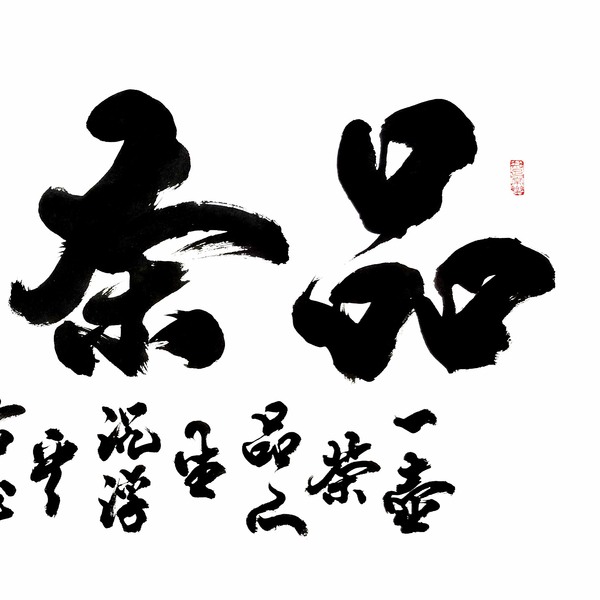 品茶
一壺
茶
品人
生
沉浮
平